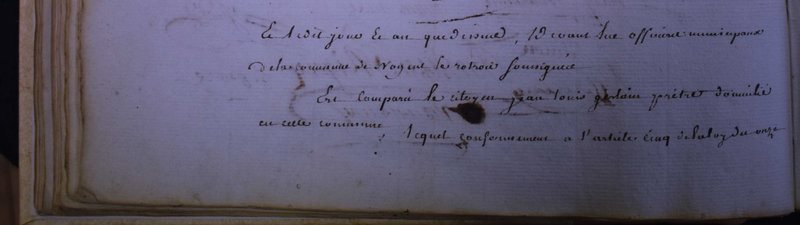 Et ledit jour et an que dessus, devant les officiers municipaux
de la commune de Nogent le rotrou soussignés
Est comparu le citoyen jean louis prêtre domicilié
en cette commune lequel conformement a l'article cinq de la loy du onze